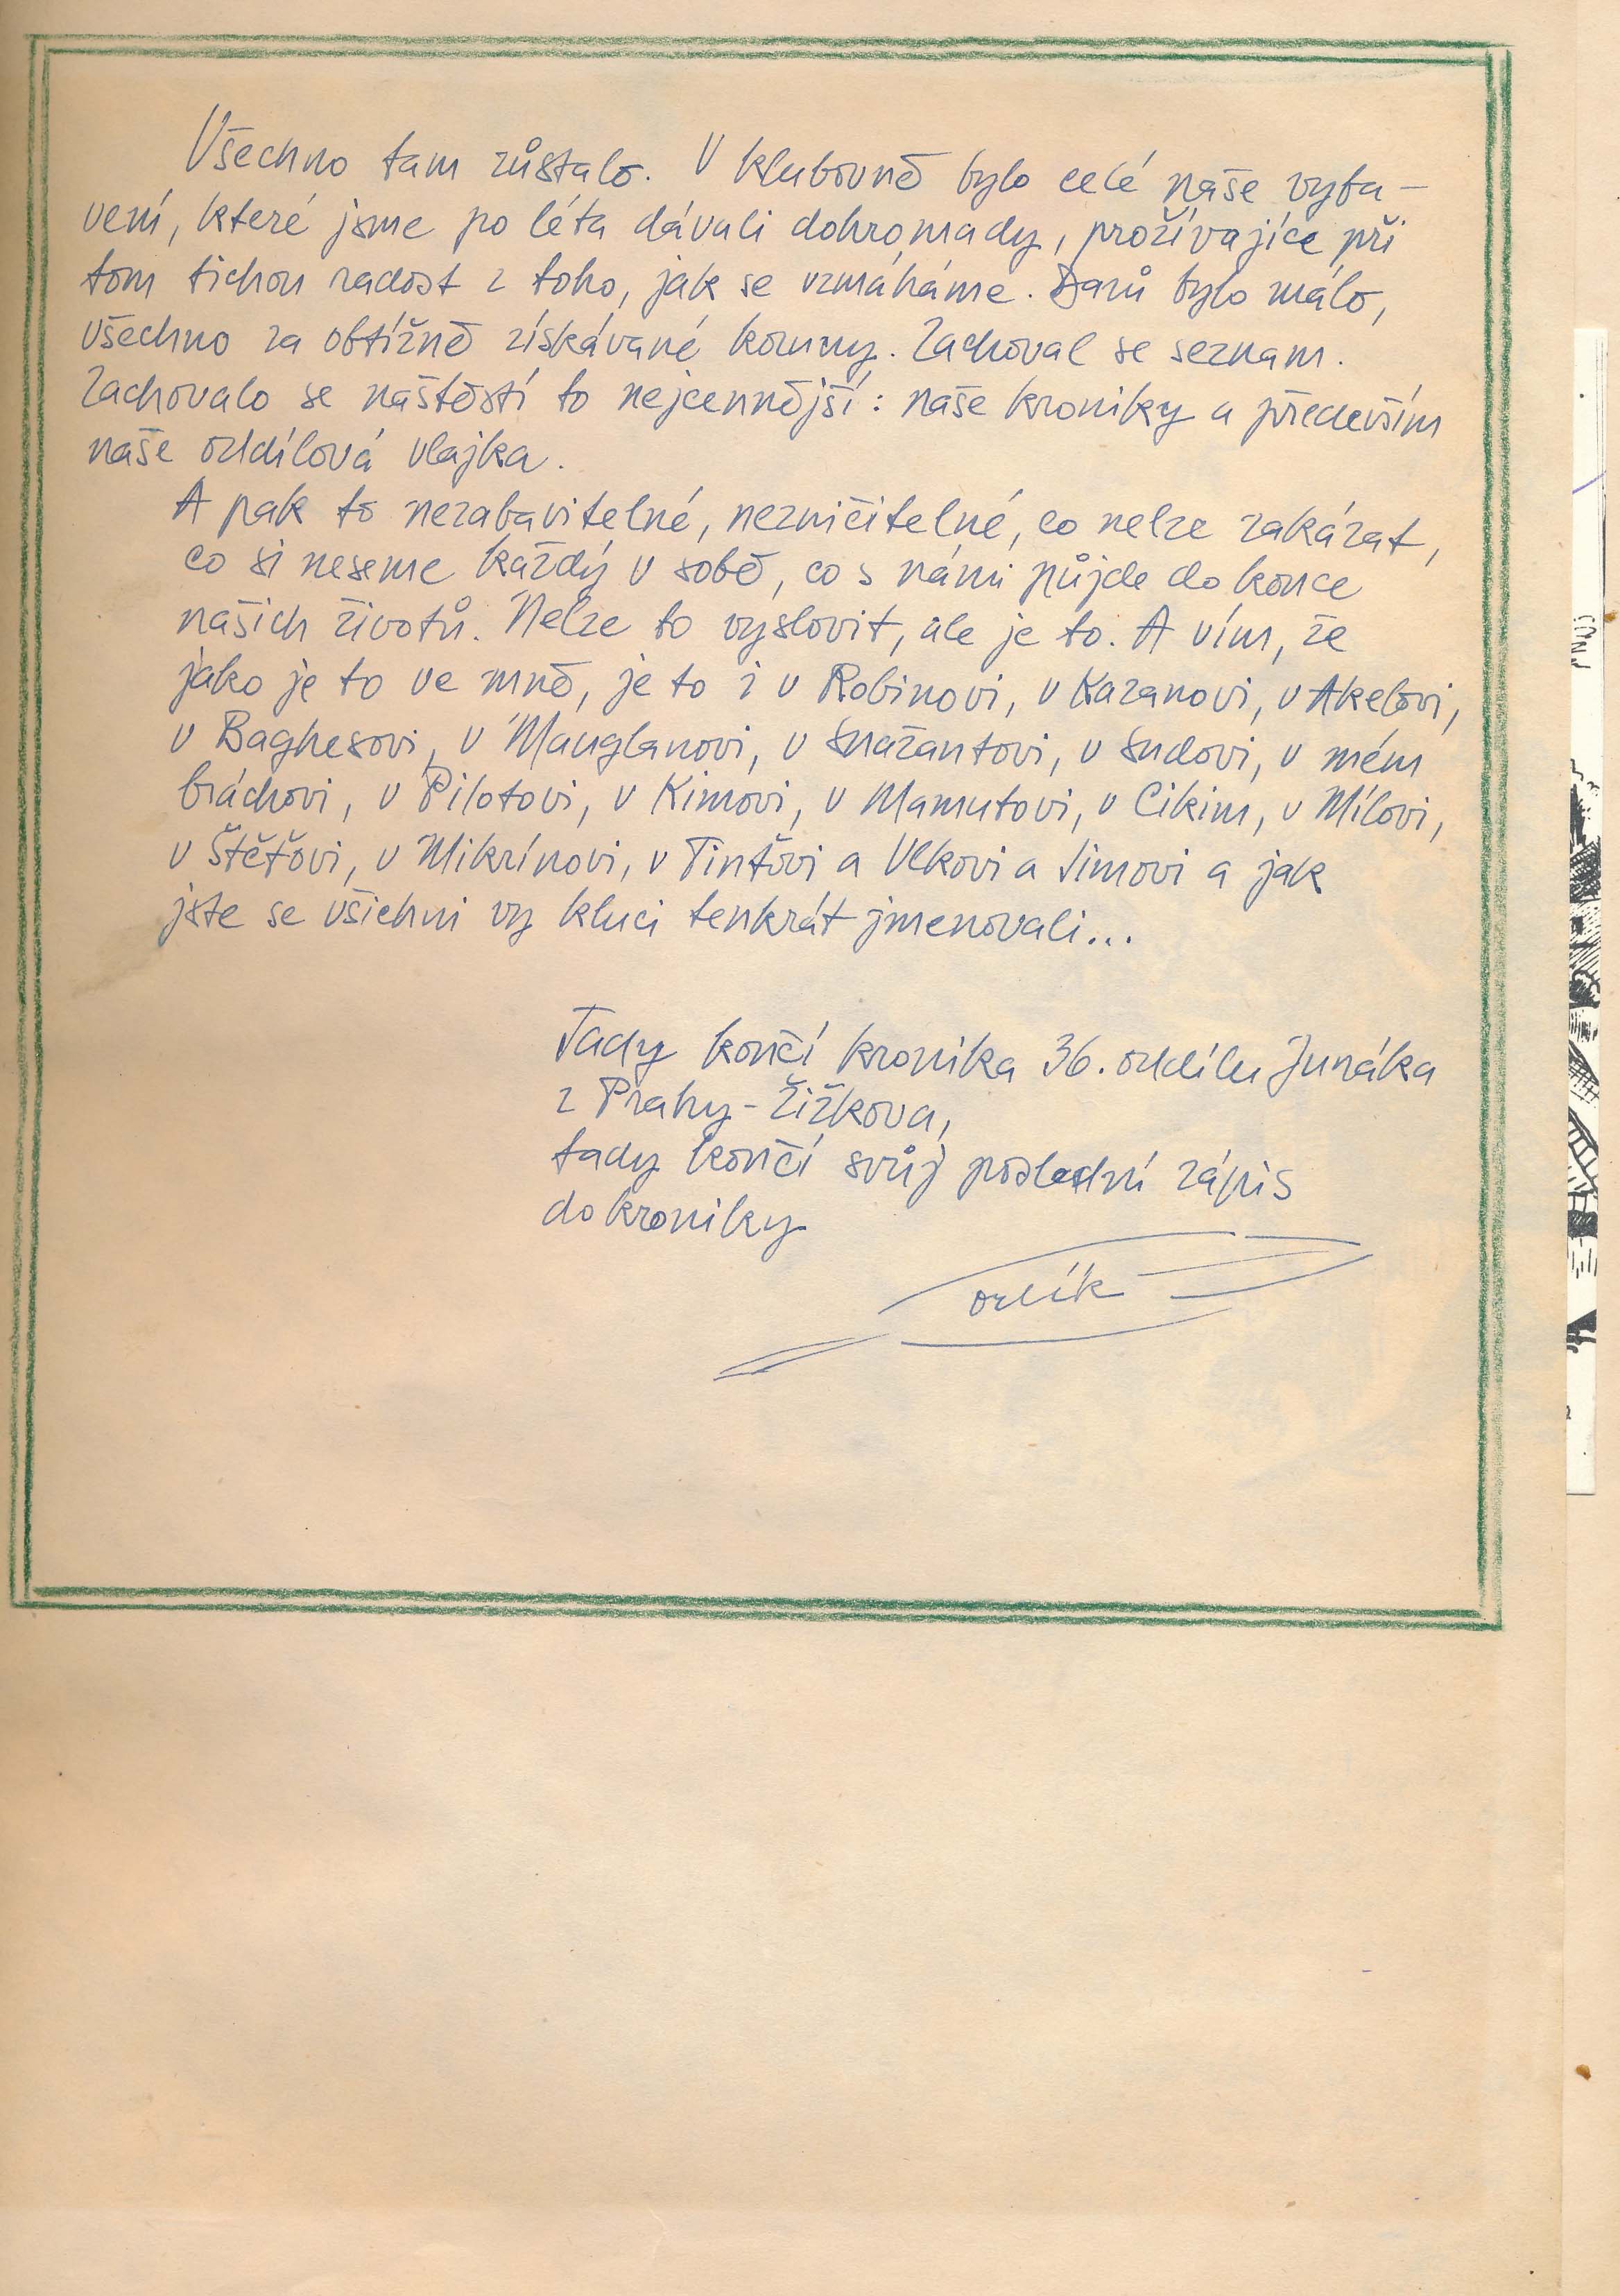 Všechno tam zůstalo. V klubovně bylo celé naše vyba-
vení, které jsme po léta dávali dohromady, prožívajíce při
tom tichou radost z toho, jak se vzmáháme. Darů bylo málo,
všechno za obtížně získávané koruny. Zachoval se seznam.
Zachovalo se naštěstí to nejcennější: naše kroniky a především
naše oddílová vlajka.
A pak to nezabavitelné, nezničitelné, co nelze zakázat,
co si neseme každý v sobě, co s námi půjde do konce
našich životů. Nelze to vyslovit, ale je to. A vím, že
jako je to ve mně, je to i v Robinovi, v Kazanovi, v Akelovi,
v Baghesovi, v Mauglanovi, v Snažantovi, v Sudovi, v mém
bráchovi, v Pilotovi, v Kimovi, v Mamutovi, v Cikim, v Mílovi,
v Štěťovi, v Mikrínovi, v Tinťovi a Vlkovi a Jimovi a jak
jste se všichni vy kluci tenkrát jmenovali...
Tady končí kronika 36. oddílu Junáka
z Prahy-Žižkova,
tady končí svůj poslední zápis
do kroniky
Orlík